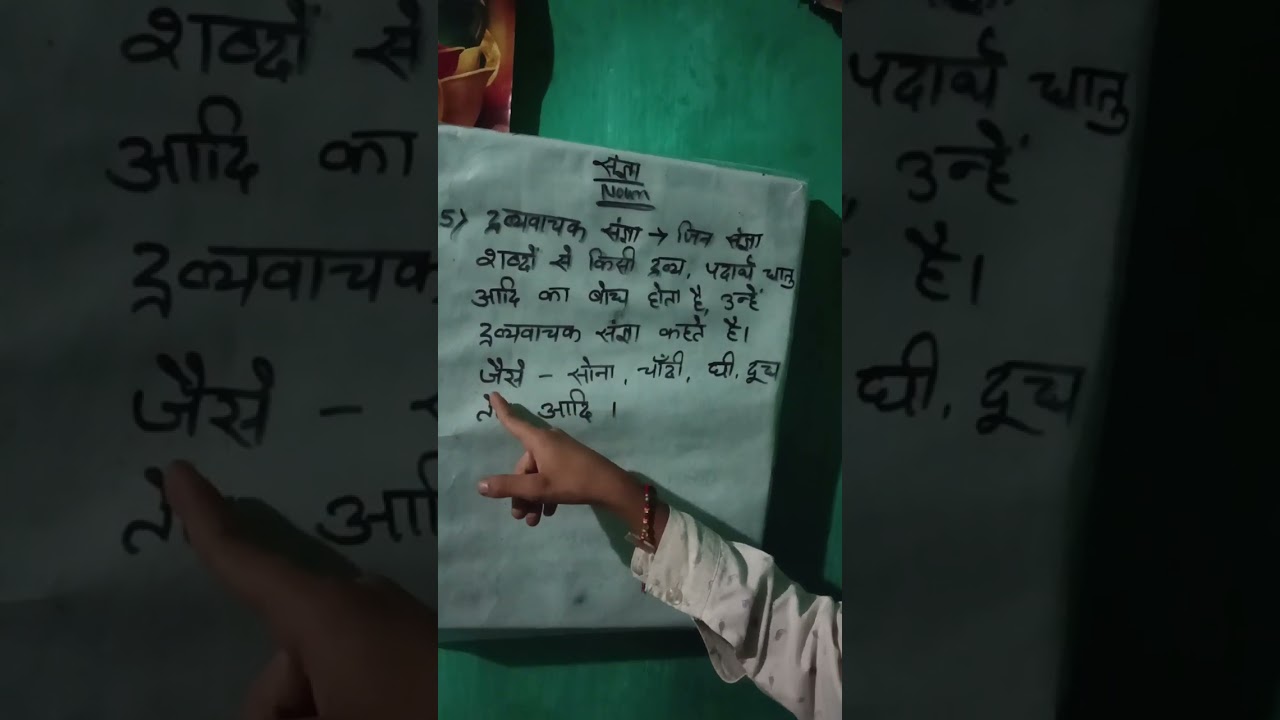 संज्ञा
Noun
5) द्रव्यवाचक संज्ञा → जिन संज्ञा
शब्दों से किसी द्रव्य, पदार्थ धातु
आदि का बोध होता है, उन्हें
द्रव्यवाचक संज्ञा कहते है।
जैसे - सोना, चाँदी, घी, दूध
आदि ।